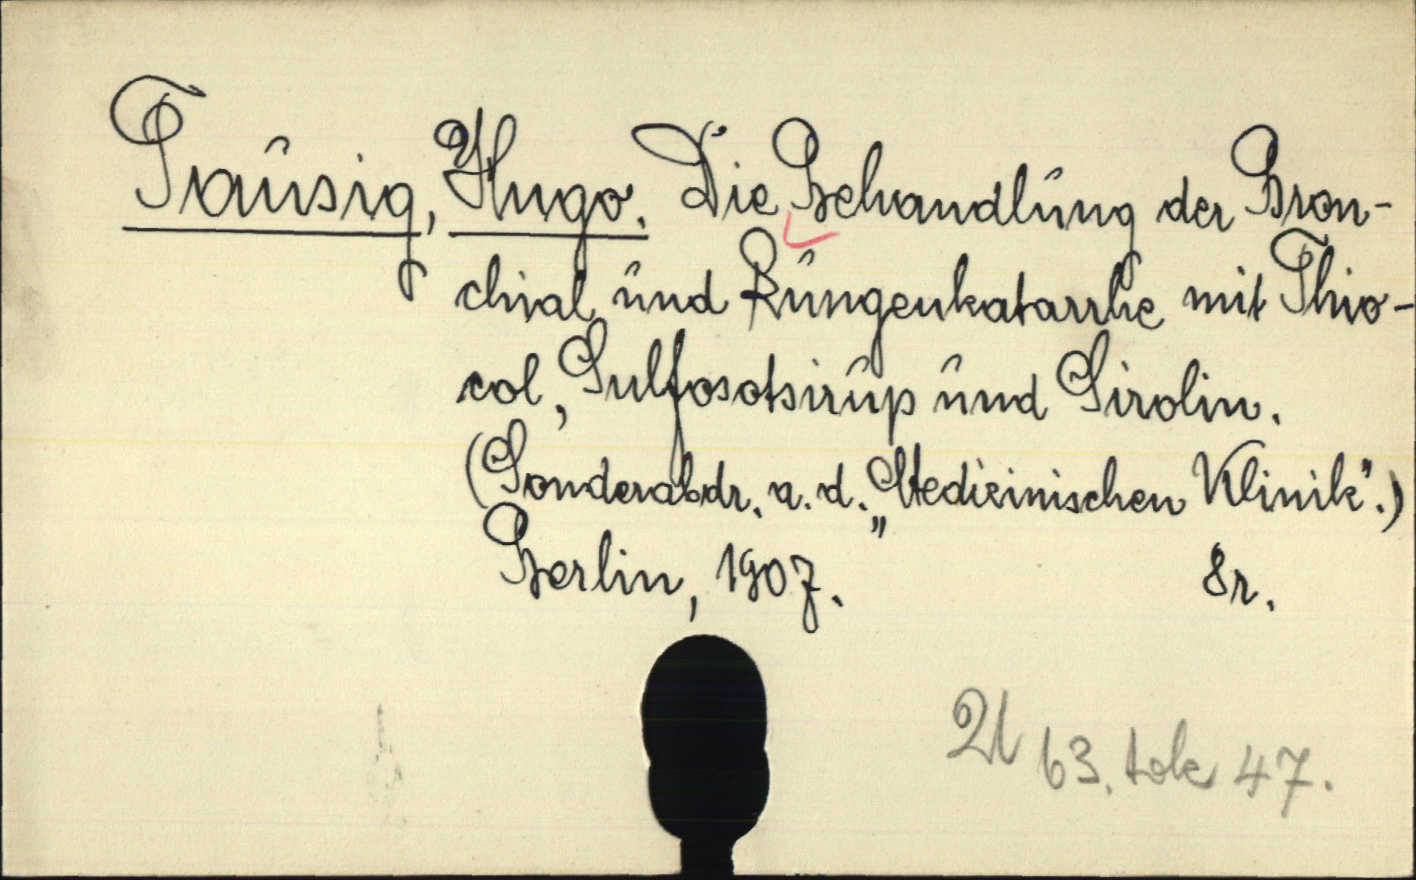 Taúsig, Hugo. Die Behandlúng der Bron-
chial únd Rúngenkatarrhe mit Thio-
col, Sulfosotsirúp únd Sirolin.
(Sonderabdr. a. d. „Medizinischen Klinik".)
Berlin, 1907. 8r.
63. tok 47.